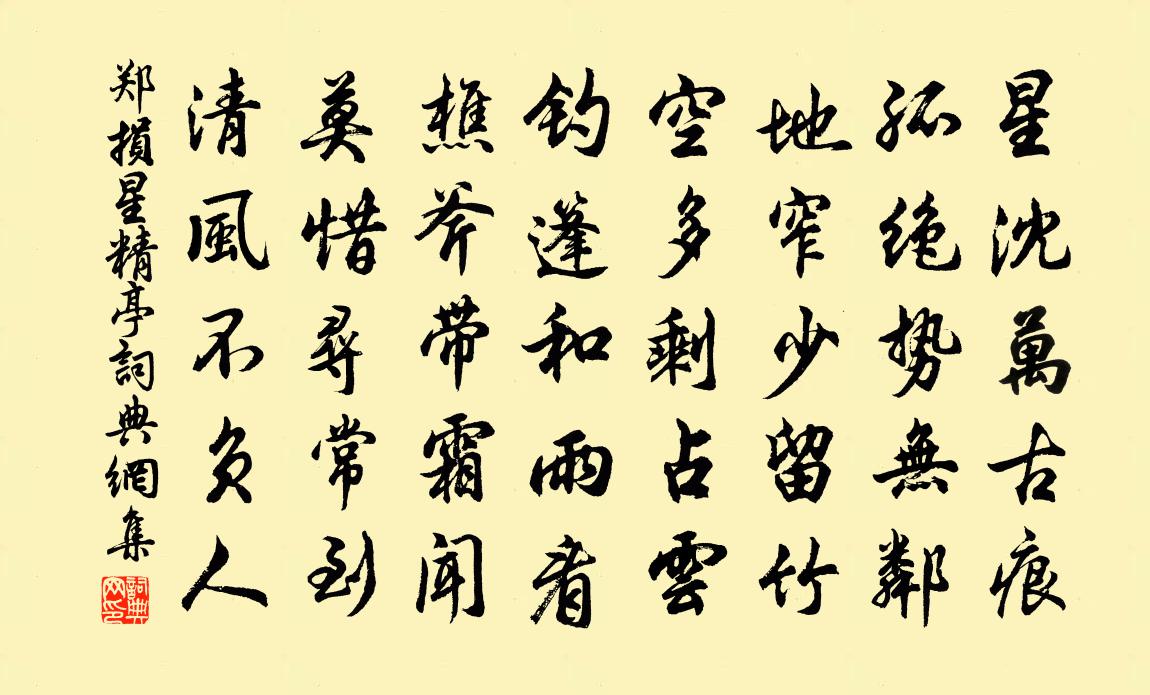 星沈萬古痕
孤绝势無鄰
地窄少留竹
空多剩占雲
钓蓬和雨看
樵斧带霜聞
莫惜尋常到
清風不负人
郑損星精亭詞典網集
詞典网印